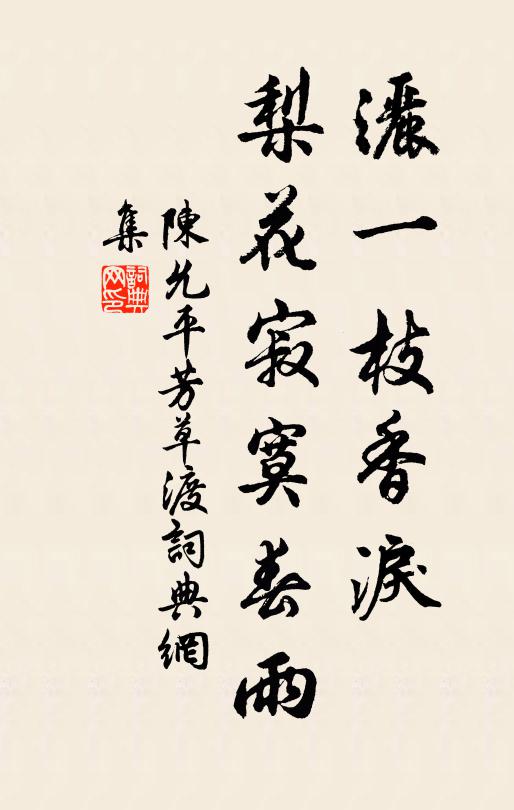 灑一枝香淚
梨花寂寞春雨
陳允平芳草渡詞典網
集
詞典
网印